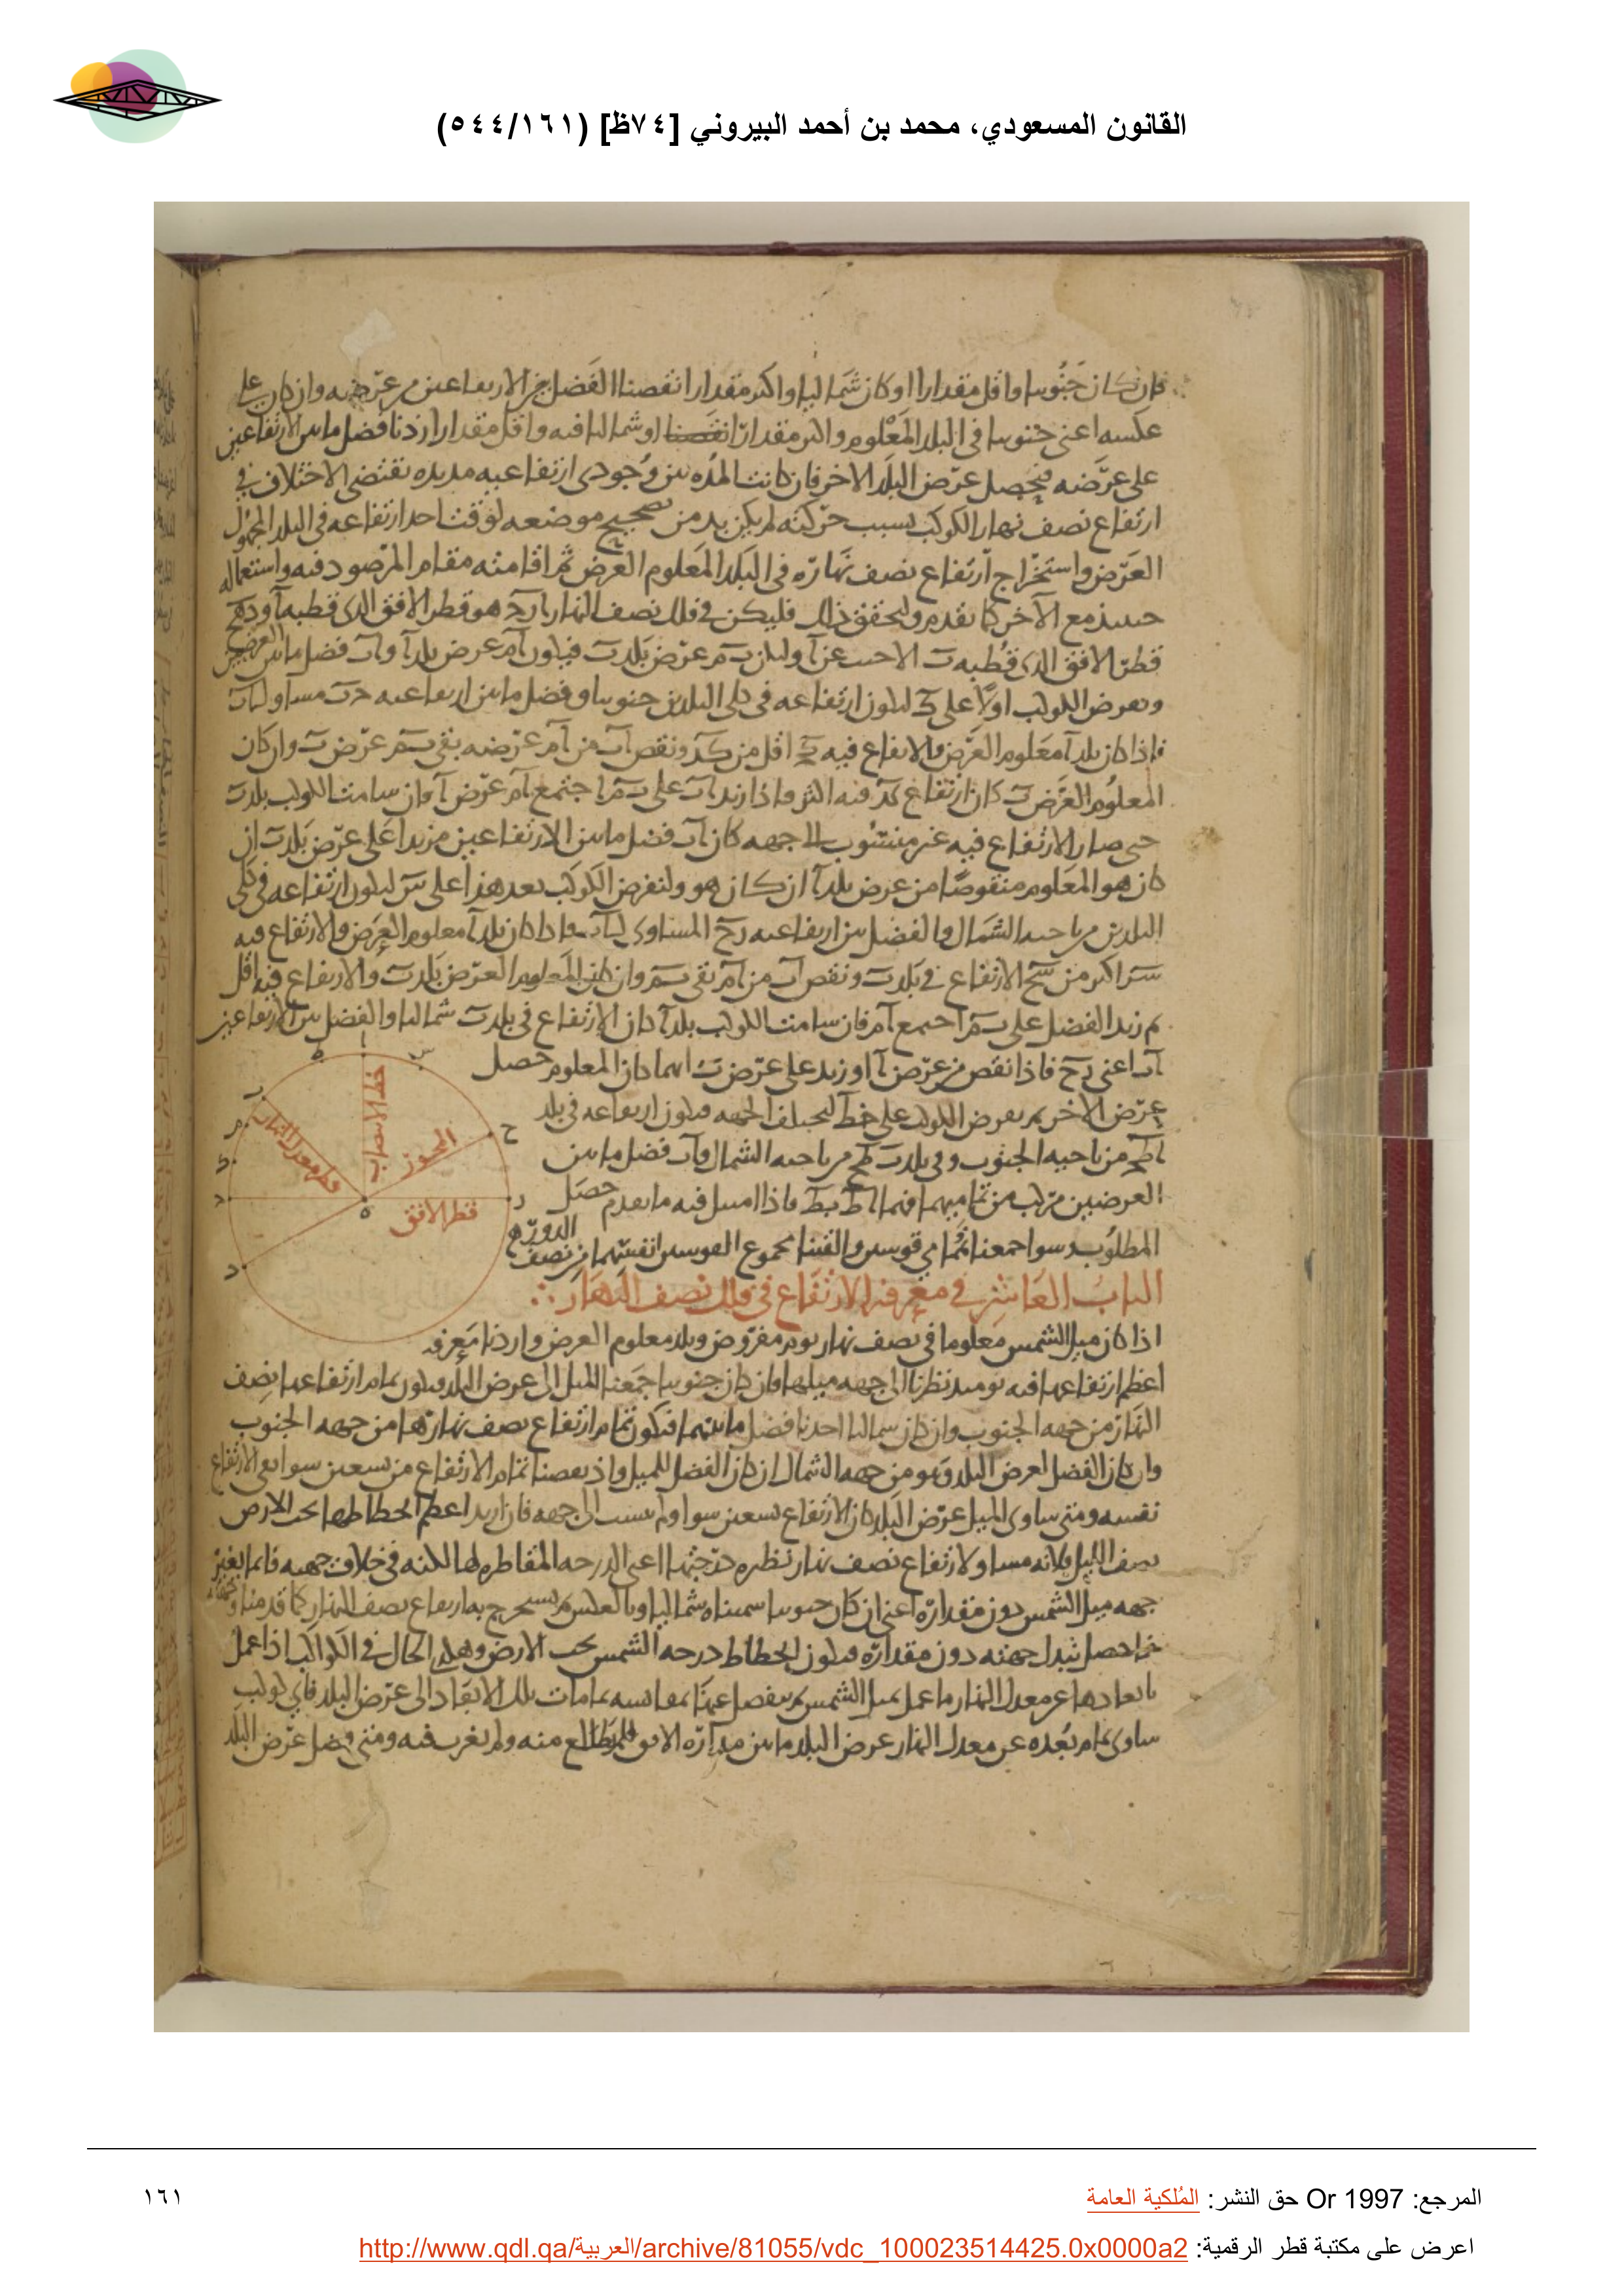 القانون المسعودي، محمد بن أحمد البيروني [٧٤ظ] (٥٤٤/١٦١)
فان كان جنوبيا واقل مقدارا او كان شماليا واكثر مقدارا نقصنا الفضل بين الارتفاعين من عرضه وان كان على
عكسه اعنى جنوبيا فى البلد المعلوم واكثر مقدارا او شماليا فيه واقل مقدارا زدنا فضل ما بين الارتفاعين
على عرضه فيحصل عرض البلد الاخر فان كانت المده بين وجودى ارتفاعيه مديده تقتضى الاختلاف فى
ارتفاع نصف نهار الكوكب بسبب حركته لم يكن بد من تصحيح موضعه لوقت احد ارتفاعه فى البلد المجهول
العرض واستخراج ارتفاع نصف نهاره فى البلد المعلوم العرض ثم اقامته مقام المرصود فيه واستعماله
حينئذ مع الاخر كما تقدم ولتحقق ذلك فليكن فى فلك نصف النهار هو قطر الافق الذى قطبه آ
قطر الافق الذى قطبه ب عرض بلد ب فيكون آم عرض بلد آ و آب فضل ما بين العرضين
ونعرض الكوكب اولا على ليكون ارتفاعه فى كلى البلدين جنوبيا وفضل ما بين ارتفاعيه مساو
فاذا كان بلد آ معلوم العرض والارتفاع فيه اقل من ونقص آب من آم عرضه بقى ب م عرض ب وان كان
المعلوم العرض ب كان ارتفاع فيه اكثر فاذا زيد آب على ب م اجتمع آم عرض آ فان سامت الكوكب بلد ب
حتى صار الارتفاع فيه غير منسوب الى جهه كان آب فضل ما بين الارتفاعين مزيدا على عرض بلد ب ان
كان هو المعلوم منقوصا من عرض بلد آ ان كان هو ولنفرض الكوكب بعد هذا على س ليكون ارتفاعه فى كلى
البلدين من ناحيه الشمال والفضل بين ارتفاعيه المساوى واذا كان بلد آ معلوم العرض والارتفاع فيه
اكثر من الارتفاع فى بلد ب ونقص آب من آم بقى ب م وان كان المعلوم العرض بلد ب والارتفاع فيه اقل
ثم زيد الفضل على ب م اجتمع آم فان سامت الكوكب بلد آ كان الارتفاع فى بلد ب شماليا والفضل بين الارتفاعين
آب اعنى فاذا نقص من عرض آ او زيد على عرض ب ايهما كان المعلوم حصل
عرض الاخر ثم نعرض الكوكب على خط لتختلف الجهه فيكون ارتفاعه فى بلد
من ناحيه الجنوب وفى بلد ب من ناحيه الشمال و آب فضل ما بين
العرضين مركب من تماميهما فاذا امتثل فيه ما تقدم حصل
المطلوب وسوا جمعنا تمامى قوسين والقينا مجموع القوسين انفسهما من نصف الدور
الباب العاشر فى معرفه الارتفاع فى فلك نصف النهار
اذا كان ميل الشمس معلوما فى نصف نهار يوم مفروض وبلد معلوم العرض واردنا معرفه
اعظم ارتفاعها فيه يومئذ نظرنا الى جهه ميلها فان كان جنوبيا جمعنا الميل الى عرض البلد فيكون تمام ارتفاعها نصف
النهار من جهه الجنوب وان كان شماليا اخذنا فضل ما بينهما فيكون تمام ارتفاع نصف نهارها من جهه الجنوب
وان كان الفضل لعرض البلد ومن جهه الشمال ان كان الفضل للميل واذا نقصنا تمام الارتفاع من تسعين سوا بقى الارتفاع
نفسه ومتى ساوى الميل عرض البلد كان الارتفاع تسعين سوا ولم ينسب الى جهه فان اريد اعظم انحطاطها تحت الارض
نصف الليل فلانه مساو لارتفاع نصف نهار نظيره درجتها اعنى الدرجه المقاطره لها لكنه فى خلاف جهته فانما نغير
جهه ميل الشمس دون مقداره اعنى ان كان جنوبيا سميناه شماليا وبالعكس ثم نستخرج به ارتفاع نصف النهار كما قدمنا
فما حصل نبدل جهته دون مقداره فيكون انحطاط درجه الشمس تحت الارض وهكذا الحال فى الكواكب اذا عمل
بابعادها عن معدل النهار ما عمل بميل الشمس ثم نفصل عنها بمقايسه تمامات تلك الابعاد الى عرض البلد فاى كوكب
ساوى تمام بعده عن معدل النهار عرض البلد ماس مداره الافق فلم يطلع منه ولم يغرب فيه ومتى فضل عرض البلد
خط الانتصاب
المحور
قطر معدل النهار
قطر الافق
المرجع: Or 1997 حق النشر: المُلكية العامة
١٦١
اعرض على مكتبة قطر الرقمية: http://www.qdl.qa/العربية/archive/81055/vdc_100023514425.0x0000a2